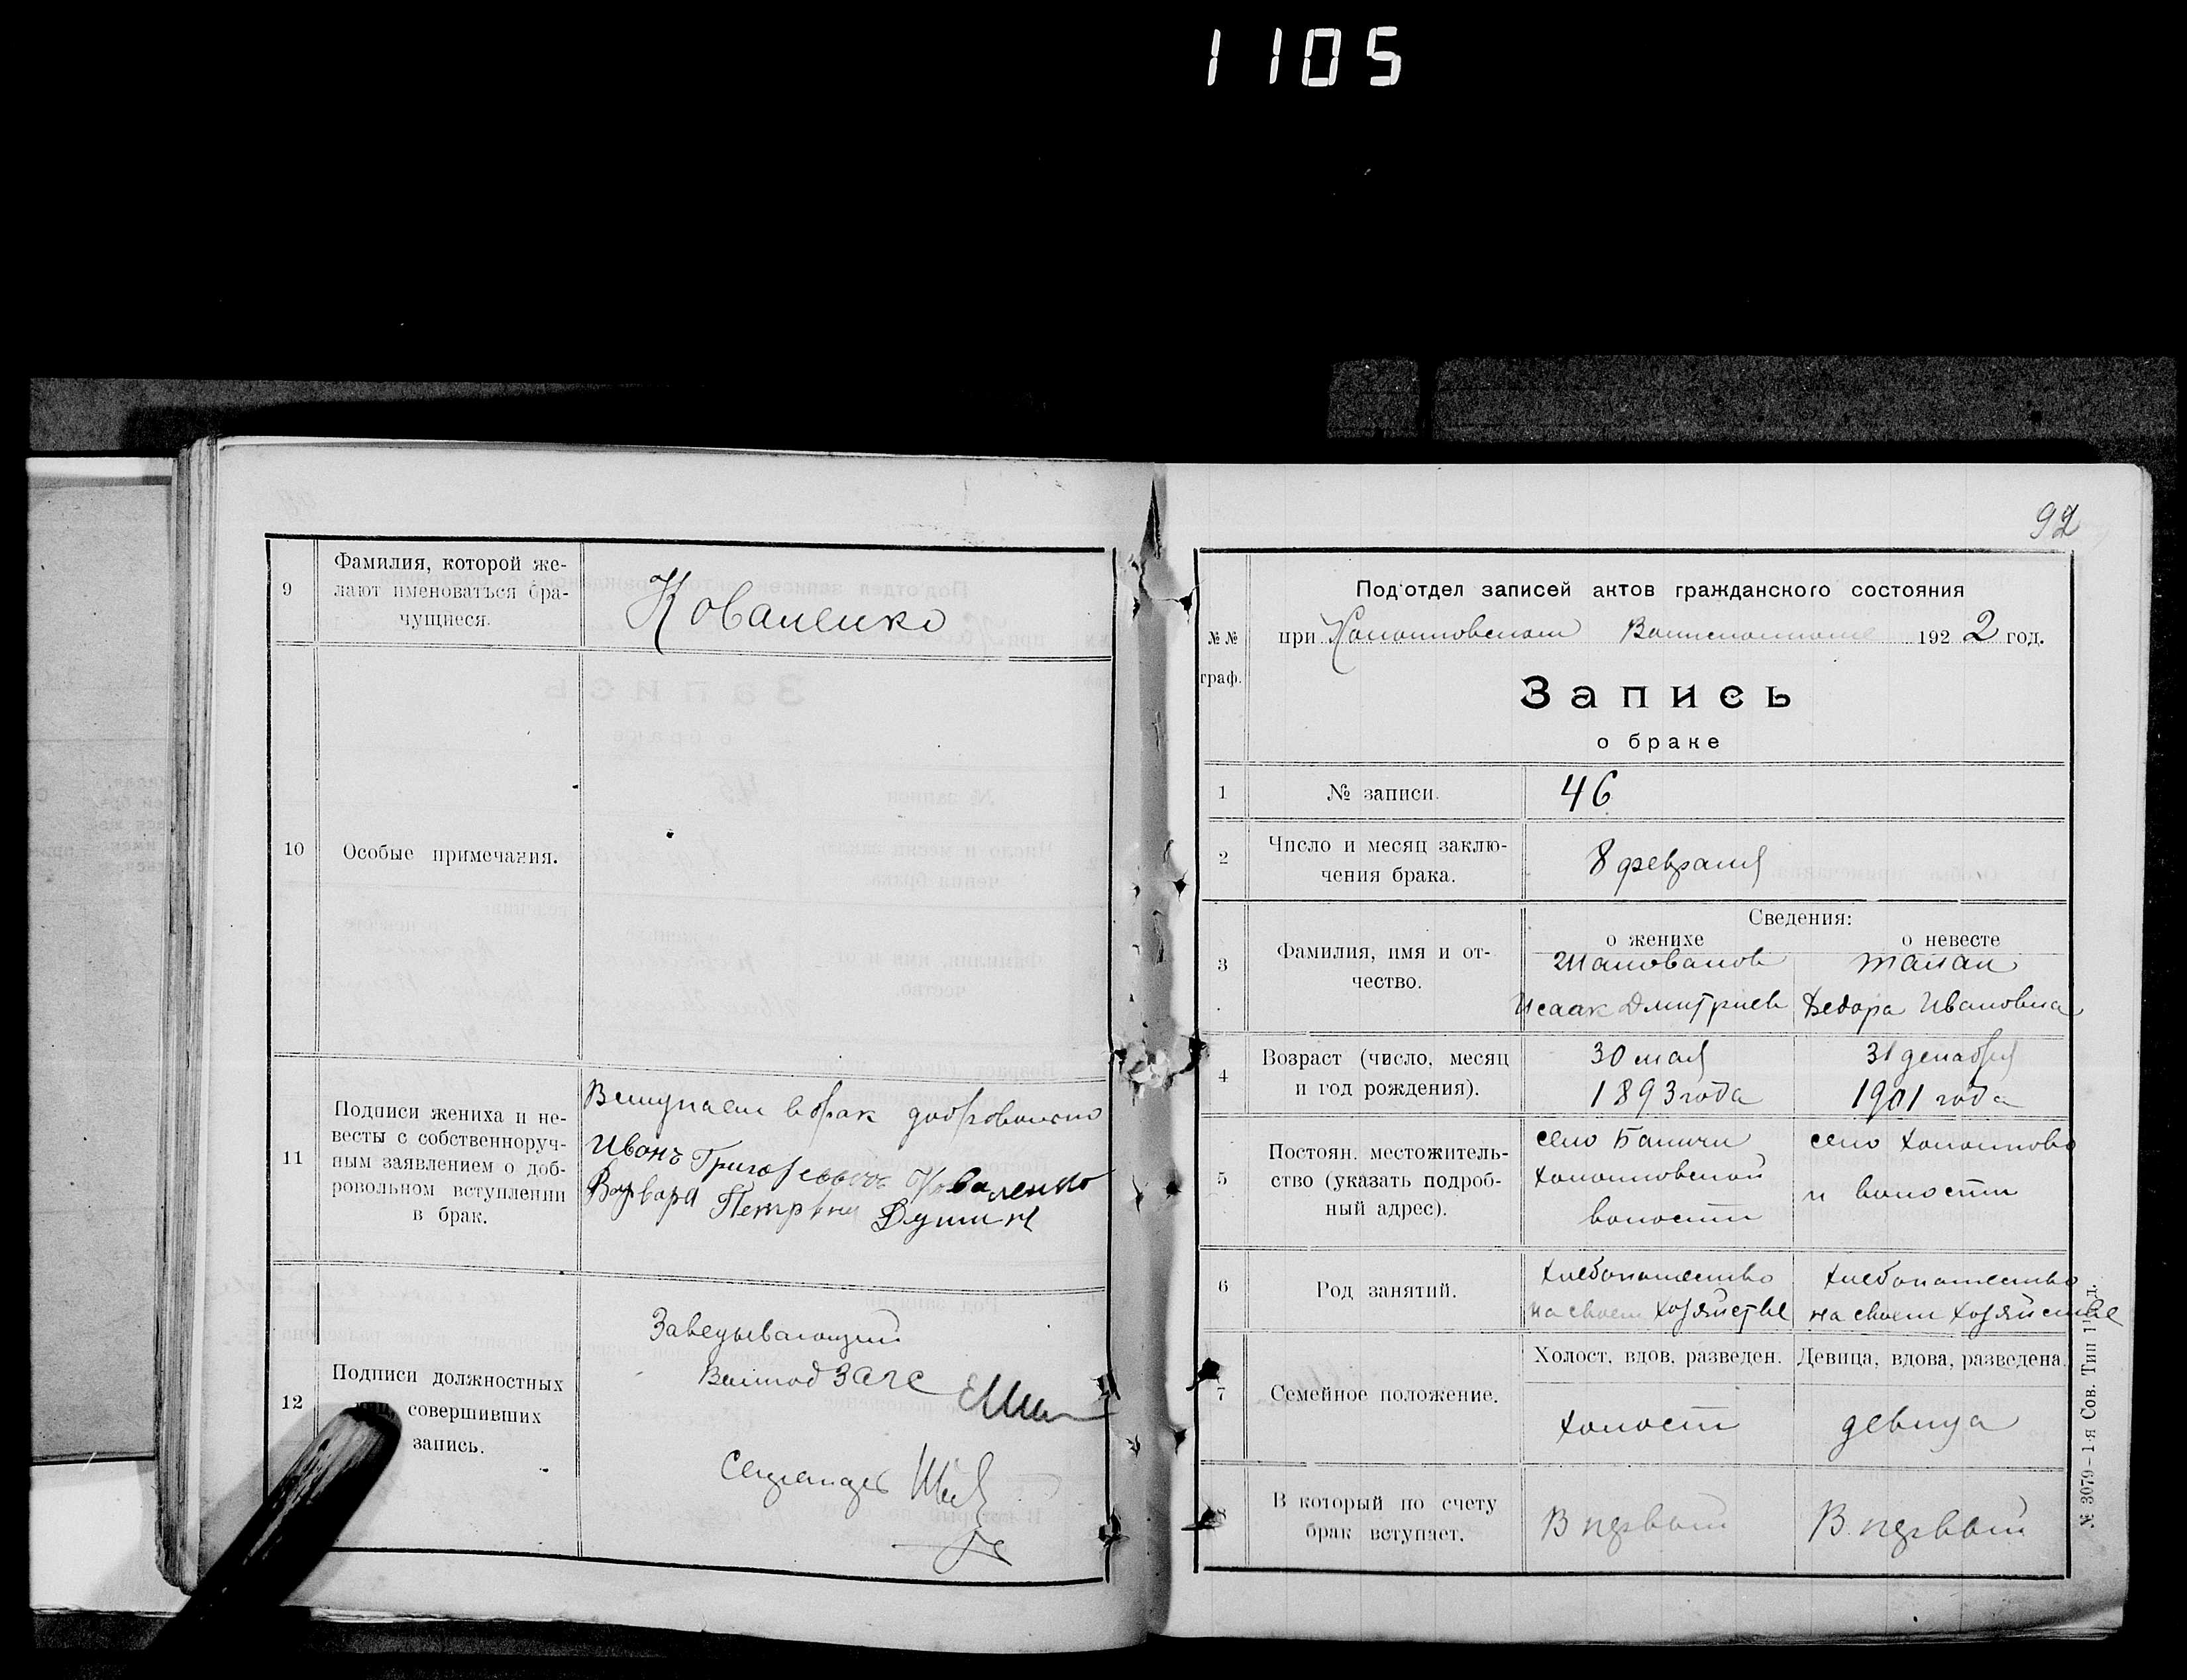 1105
9
Фамилия, которой же-
лают именоваться бра-
чущиеся.
Коваленко
10
Особые примечания.
11
Подписи жениха и не-
весты с собственноруч-
ным заявлением о доб-
ровольном вступлении
в брак.
Вступаем в брак добровольно
Иванъ Григорьевичъ Коваленко
Варвара Петровна
12
Подписи должностных
лиц, совершивших
запись.
Заведывающий
ЗАГС
Секретарь
92
№ №
граф.
Под'отдел записей актов гражданского состояния
при 1922 год.
Запись
о браке
1
№ записи.
46
2
Число и месяц заклю-
чения брака.
8 февраля
3
Фамилия, имя и от-
чество.
Сведения:
о женихе
о невесте
Шаповалов
Исаак Дмитриев
Ивановна
4
Возраст (число, месяц
и год рождения).
30 мая
1893 года
31 декабря
1901 года
5
Постоян. местожитель-
ство (указать подроб-
ный адрес).
село Баничи
волости
село
и волости
6
Род занятий.
Хлебопашество
на своем хозяйстве
Хлебопашество
на своем хозяйстве
7
Семейное положение.
Холост, вдов, разведен.
Девица, вдова, разведена.
холост
девица
8
В который по счету
брак вступает.
В первый
В первый
№ 3079 – 1-я Сов. Тип